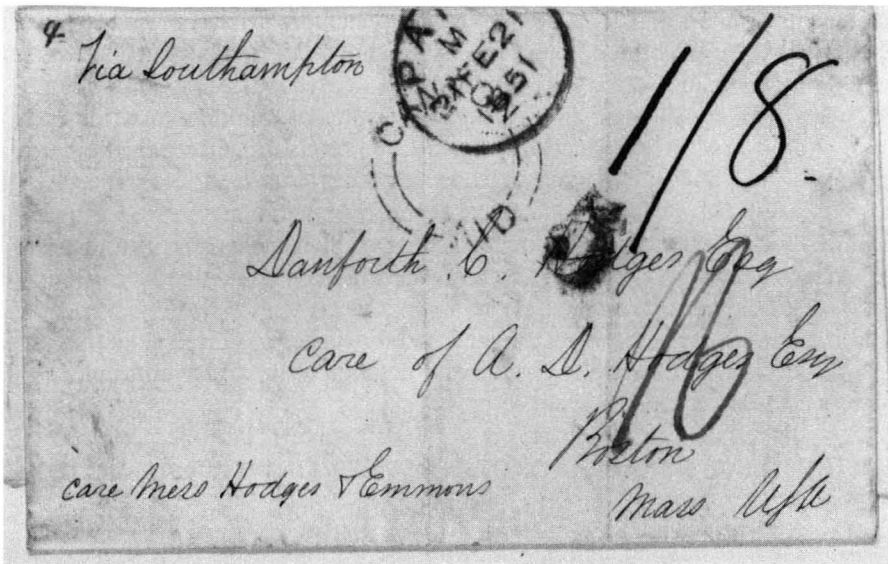 Via Southampton
PAI
M
FE 21
1851
PAID
1/8
Danforth C. Hodges Esq
Care of A. D. Hodges Esq
16
Boston
care Mess Hodges & Emmons
Mass USA